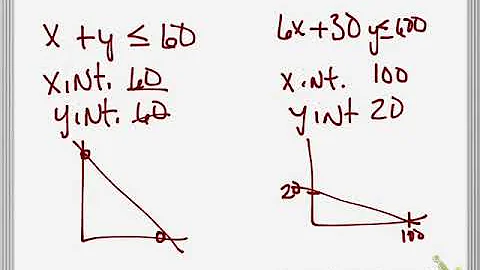 x + y ≤ 60
x int. 60
y int. 60
6x + 30y ≤ 600
x int. 100
y int 20
20
100